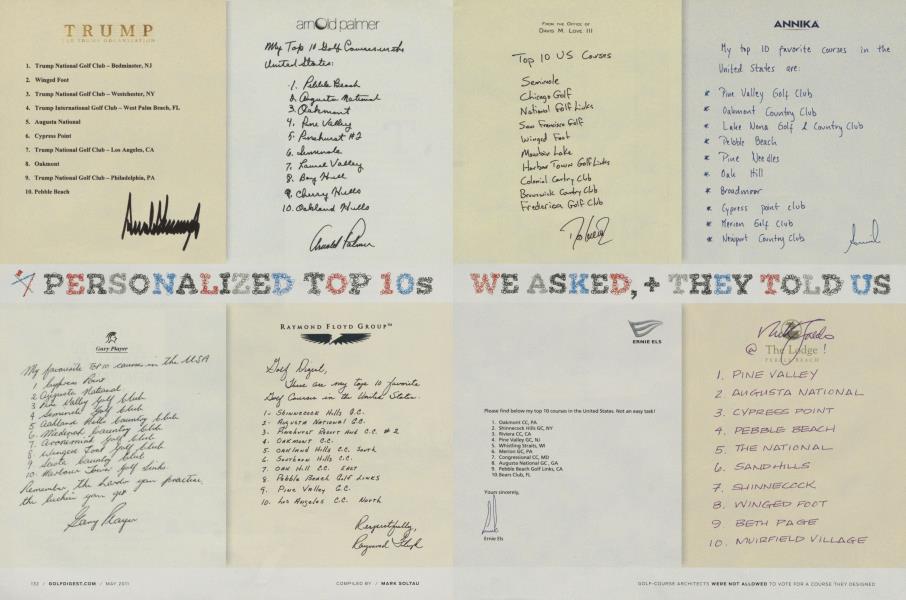 TRUMP
THE TRUMP ORGANIZATION
1. Trump National Golf Club – Bedminster, NJ
2. Winged Foot
3. Trump National Golf Club – Westchester, NY
4. Trump International Golf Club – West Palm Beach, FL
5. Augusta National
6. Cypress Point
7. Trump National Golf Club – Los Angeles, CA
8. Oakmont
9. Trump National Golf Club – Philadelphia, PA
10. Pebble Beach
arnold palmer
My Top 10 Golf Courses in the
United States:
1. Pebble Beach
2. Augusta National
3 Oakmont
4. Pine Valley
5 Pinehurst #2
6. Seminole
7. Laurel Valley
8. Bay Hill
9. Cherry Hills
10. Oakland Hills
Arnold Palmer
FROM THE OFFICE OF
DAVIS M. LOVE III
Top 10 US Courses
Seminole
Chicago Golf
National Golf Links
San Francisco Golf
Winged Foot
Harbor Town Golf Links
Colonial Country Club
Brunswick Country Club
Frederica Golf Club
ANNIKA
My top 10 favorite courses in the
United States are:
* Pine Valley Golf Club
* Oakmont Country Club
* Lake Nona Golf & Country Club
* Pebble Beach
* Pine Needles
* Oak Hill
* Broadmoor
* Cypress point club
* Merion Golf Club
* Newport Country Club
PERSONALIZED TOP 10s
WE ASKED, + THEY TOLD US
Gary Player
My favourite TOP 10 courses in the USA
1 Cypress Point
2 Augusta National
3 Pine Valley Golf Club
4 Seminole Golf Club
5 Oakland Hills Country Club
6 Medinah Country Club
7 Aronimink Golf Club
8 Winged Foot Golf Club
9 Scioto Country Club
10. Harbour Town Golf Links
Remember the harder you practice
the luckier you get
Gary Player
RAYMOND FLOYD GROUP™
Golf Digest,
These are my top 10 favorite
Golf Courses in the United States.
1- Shinnecock Hills G.C.
2- Augusta National G.C.
3- Pinehurst Resort and C.C. #2
4- Oakmont C.C.
5- Oakland Hills C.C. South
6- Southern Hills C.C.
7- Oak Hill C.C. East
8- Pebble Beach Golf Links
9. Pine Valley G.C.
10. Los Angeles C.C. North
Respectfully,
Raymond Floyd
ERNIE ELS
Please find below my top 10 courses in the United States. Not an easy task!
1. Oakmont CC, PA
2. Shinnecock Hills GC, NY
3. Riviera CC, CA
4. Pine Valley GC, NJ
5. Whistling Straits, WI
6. Merion GC, PA
7. Congressional CC, MD
8. Augusta National GC, GA
9. Pebble Beach Golf Links, CA
10. Bears Club, FL
Yours sincerely,
Ernie Els
Nick Faldo
@ The Lodge !
PEBBLE BEACH
1. PINE VALLEY
2. AUGUSTA NATIONAL
3. CYPRESS POINT
4. PEBBLE BEACH
5. THE NATIONAL
6. SANDHILLS
7. SHINNECOCK
8. WINGED FOOT
9. BETH PAGE
10. MUIRFIELD VILLAGE
132 / GOLFDIGEST.COM / MAY 2011
COMPILED BY / MARK SOLTAU
GOLF-COURSE ARCHITECTS WERE NOT ALLOWED TO VOTE FOR A COURSE THEY DESIGNED